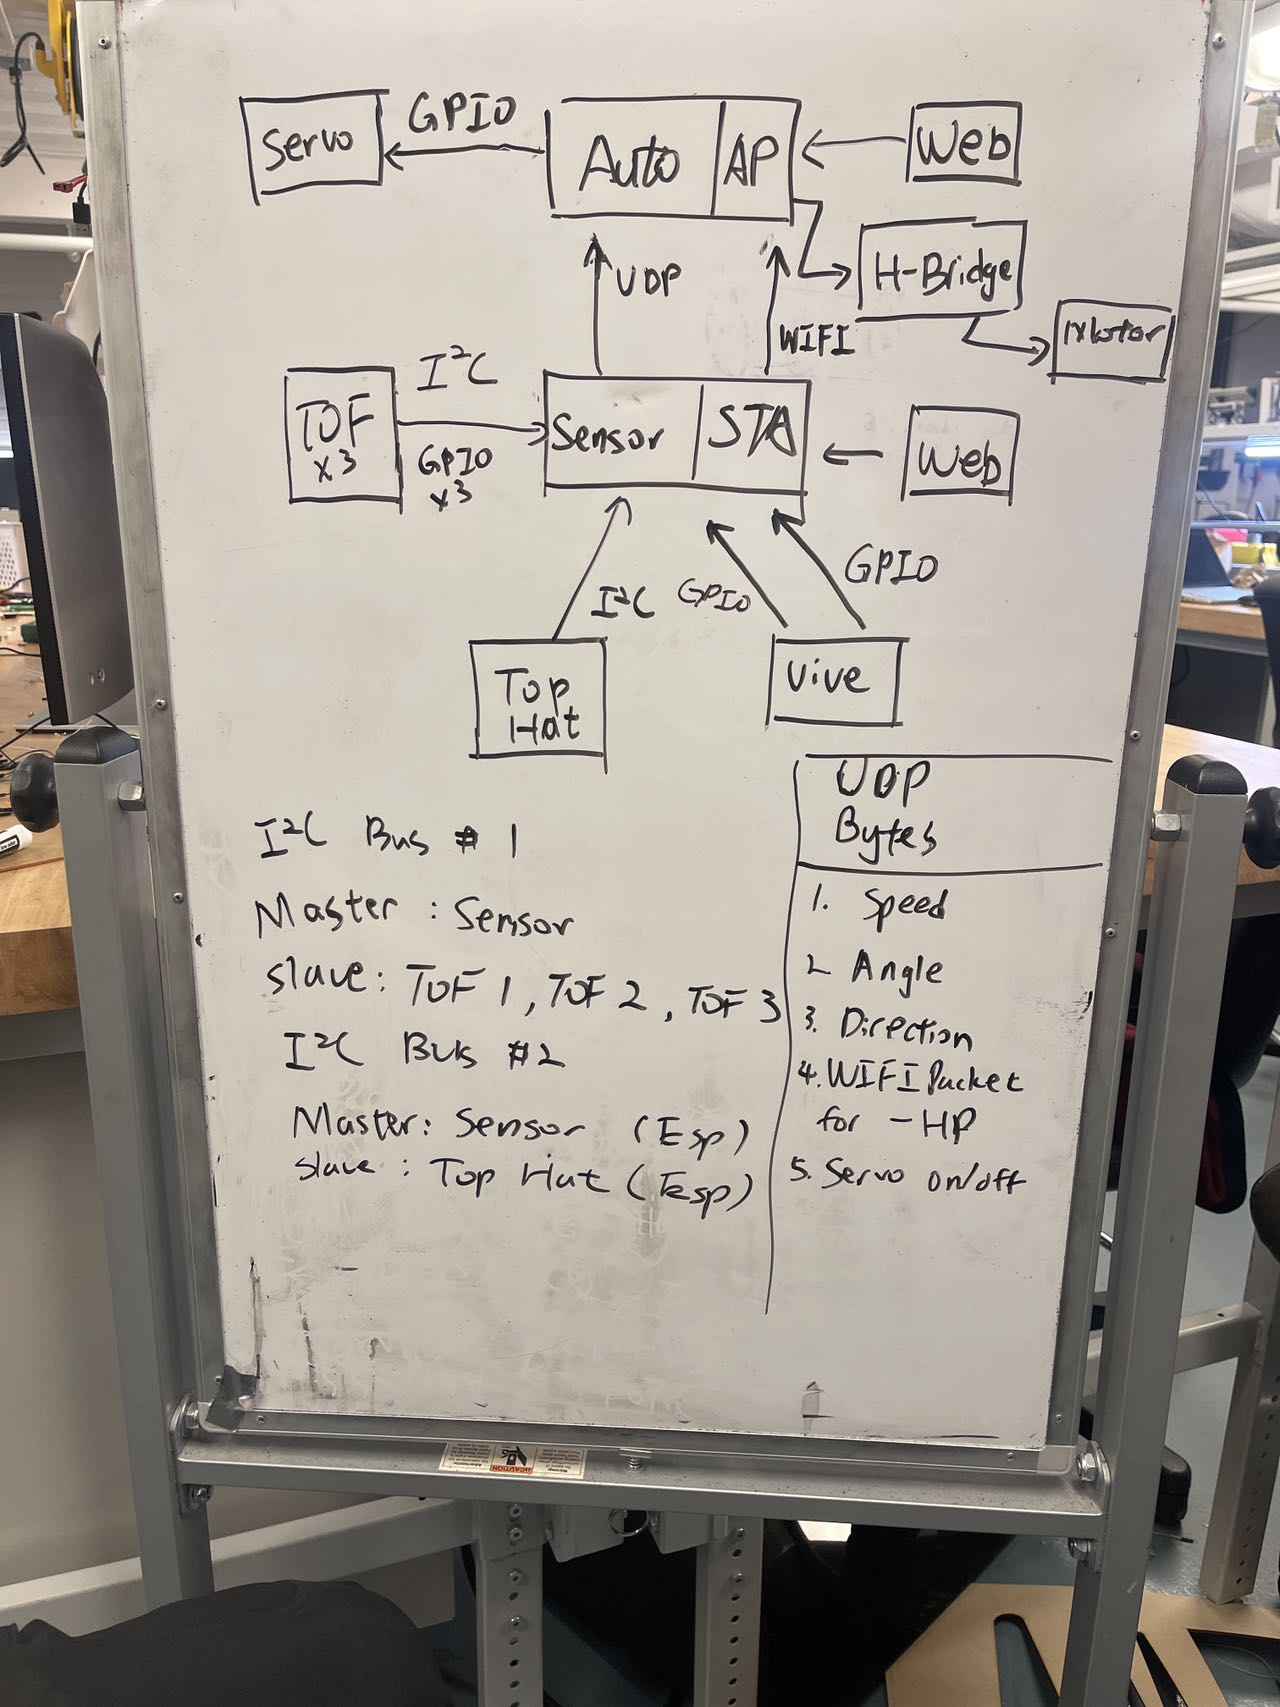 Servo
GPIO
Auto
AP
Web
UDP
WIFI
H-Bridge
Motor
TOF
x3
I²C
GPIO
x3
Sensor
STA
Web
I²C
GPIO
GPIO
Top
Hat
Vive
I²C Bus # 1
Master : Sensor
Slave : ToF 1 , ToF 2 , ToF 3
I²C Bus #2
Master : Sensor (Esp)
Slave : Top Hat (Esp)
UDP
Bytes
1. Speed
2 Angle
3. Direction
4. WIFI Packet
for - HP
5. Servo on/off
CAUTION